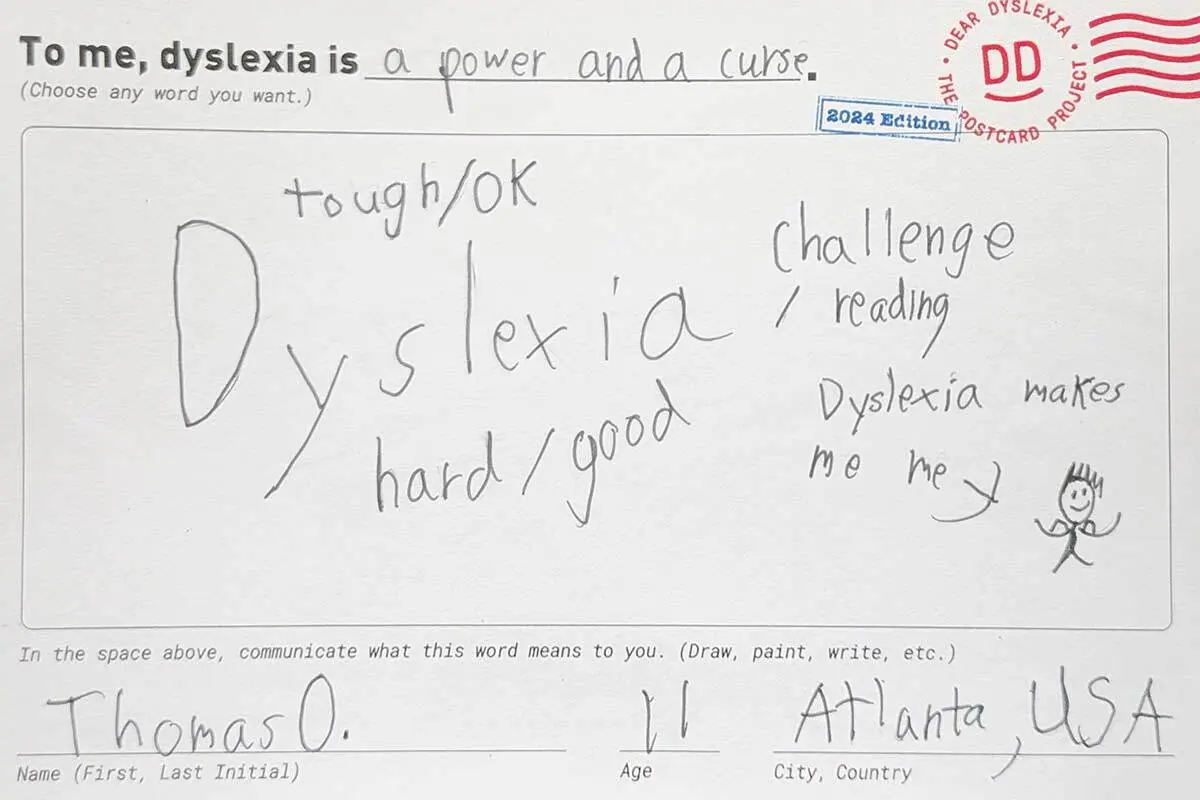 To me, dyslexia is a power and a curse.
(Choose any word you want.)
DEAR DYSLEXIA • THE POSTCARD PROJECT •
DD
2024 Edition
tough/OK
Dyslexia
hard/good
challenge
/ reading
Dyslexia makes
me me
In the space above, communicate what this word means to you. (Draw, paint, write, etc.)
Thomas O.
Name (First, Last Initial)
11
Age
Atlanta, USA
City, Country